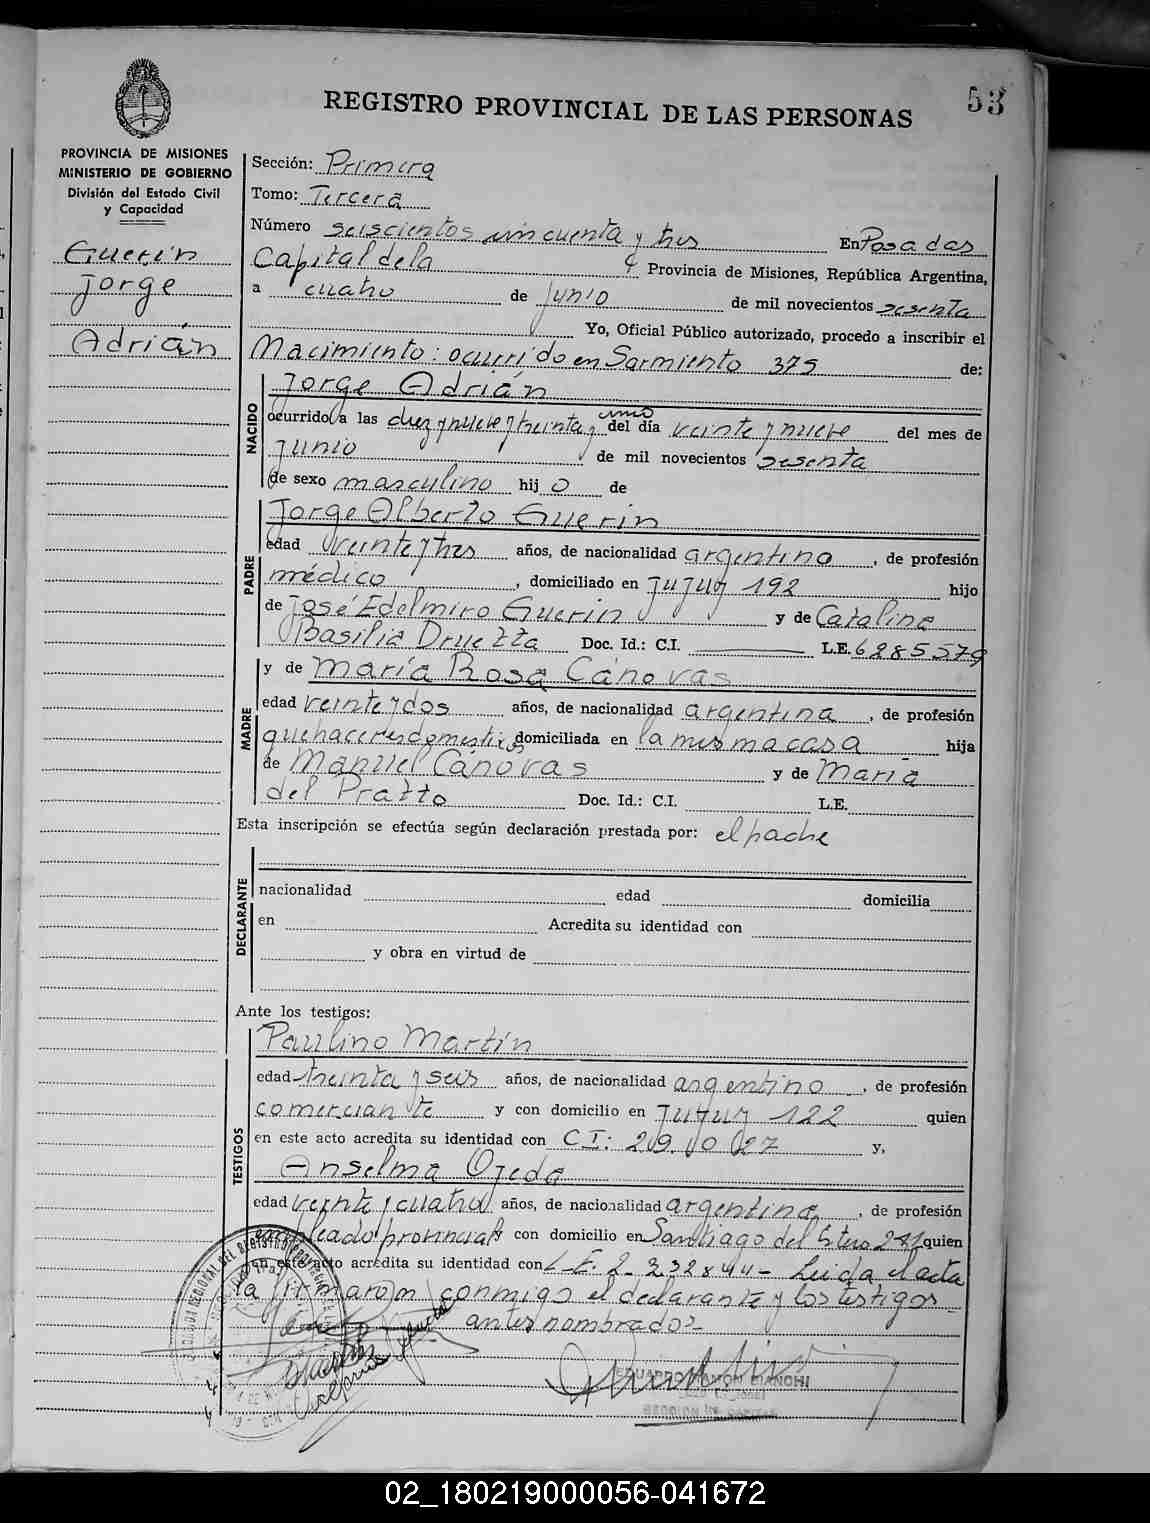 REGISTRO PROVINCIAL DE LAS PERSONAS
53
PROVINCIA DE MISIONES
MINISTERIO DE GOBIERNO
División del Estado Civil
y Capacidad
Guerin
Jorge
Adrián
Sección: Primera
Tomo: Tercera
Número seiscientos cincuenta y tres En Posadas
Capital de la Provincia de Misiones, República Argentina,
a cuatro de Junio de mil novecientos sesenta
Yo, Oficial Público autorizado, procedo a inscribir el
Nacimiento: ocurrido en Sarmiento 375 de:
NACIDO
Jorge Adrián
uno
ocurrido a las diez y nueve y treinta y del día veinte y nueve del mes de
Junio de mil novecientos sesenta
de sexo masculino hij o de
PADRE
Jorge Alberto Guerin
edad veinte y tres años, de nacionalidad argentino, de profesión
médico, domiciliado en Jujuy 192 hijo
de José Edelmiro Guerin y de Catalina
Basilia Druetta Doc. Id.: C.I. L.E. 6285579
MADRE
y de María Rosa Cánovas
edad veinte y dos años, de nacionalidad argentina, de profesión
quehaceres domesticos domiciliada en la misma casa hija
de Manuel Cánovas y de María
del Pratto Doc. Id.: C.I. L.E.
Esta inscripción se efectúa según declaración prestada por: el padre
DECLARANTE
nacionalidad edad domicilia
en Acredita su identidad con
y obra en virtud de
Ante los testigos:
TESTIGOS
Paulino Martín
edad treinta y seis años, de nacionalidad argentino, de profesión
comerciante y con domicilio en Jujuy 122 quien
en este acto acredita su identidad con C I: 29.027 y,
Anselma Ojeda
edad veinte y cuatro años, de nacionalidad argentina, de profesión
empleado provincial y con domicilio en Santiago del Estero 241 quien
en este acto acredita su identidad con L-E. 2-232844- Leida el acta
la firmaron conmigo el declarante y los testigos
antes nombrados-
EDUARDO RAMON BIANCHI
02_180219000056-041672